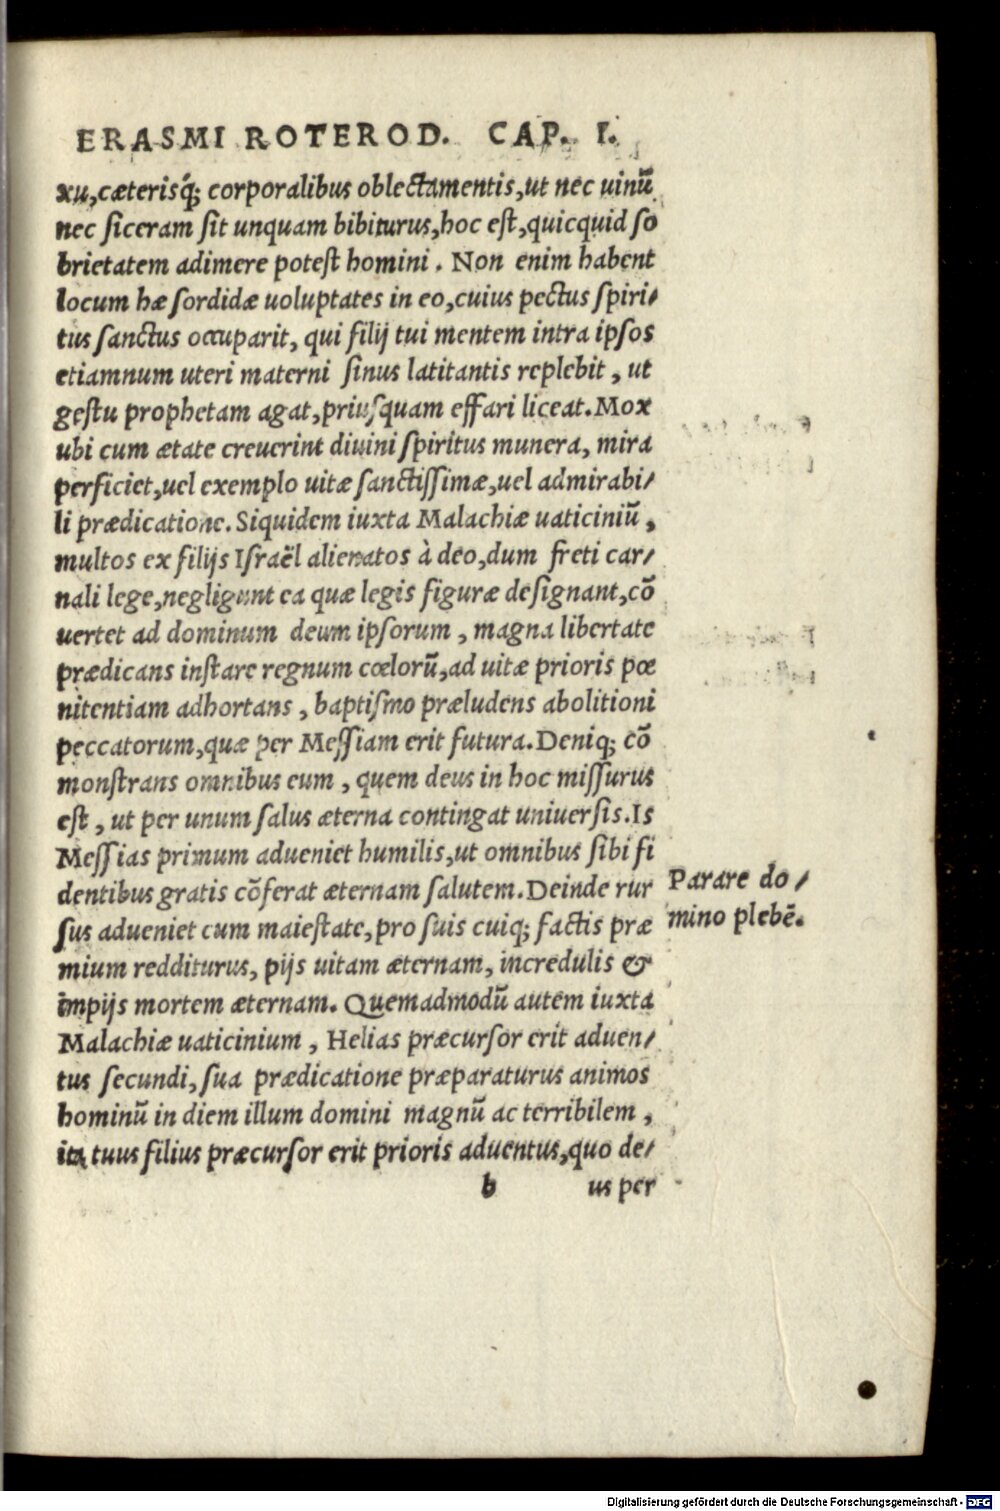 ERASMI ROTEROD. CAP. I.
xu, cæterisq́; corporalibus oblectamentis, ut nec uinū
nec siceram sit unquam bibiturus, hoc est, quicquid so
brietatem adimere potest homini. Non enim habent
locum hæ sordidæ uoluptates in eo, cuius pectus spiri/
tus sanctus occuparit, qui filij tui mentem intra ipsos
etiamnum uteri materni sinus latitantis replebit, ut
gestu prophetam agat, priusquam effari liceat. Mox
ubi cum ætate creuerint diuini spiritus munera, mira
perficiet, uel exemplo uitæ sanctissimæ, uel admirabi/
li prædicatione. Siquidem iuxta Malachiæ uaticiniū,
multos ex filijs Israël alienatos à deo, dum freti car/
nali lege, negligunt ea quæ legis figuræ designant, cō
uertet ad dominum deum ipsorum, magna libertate
prædicans instare regnum cœlorū, ad uitæ prioris pœ
nitentiam adhortans, baptismo præludens abolitioni
peccatorum, quæ per Messiam erit futura. Deniq; cō
monstrans omnibus eum, quem deus in hoc missurus
est, ut per unum salus æterna contingat uniuersis. Is
Messias primum adueniet humilis, ut omnibus sibi fi
dentibus gratis cōferat æternam salutem. Deinde rur
sus adueniet cum maiestate, pro suis cuiq; factis præ
mium redditurus, pijs uitam æternam, incredulis &
impijs mortem æternam. Quemadmodū autem iuxta
Malachiæ uaticinium, Helias præcursor erit aduen/
tus secundi, sua prædicatione præparaturus animos
hominū in diem illum domini magnū ac terribilem,
ita tuus filius præcursor erit prioris aduentus, quo de/
b us per
Parare do/
mino plebē.
Digitalisierung gefördert durch die Deutsche Forschungsgemeinschaft - DFG